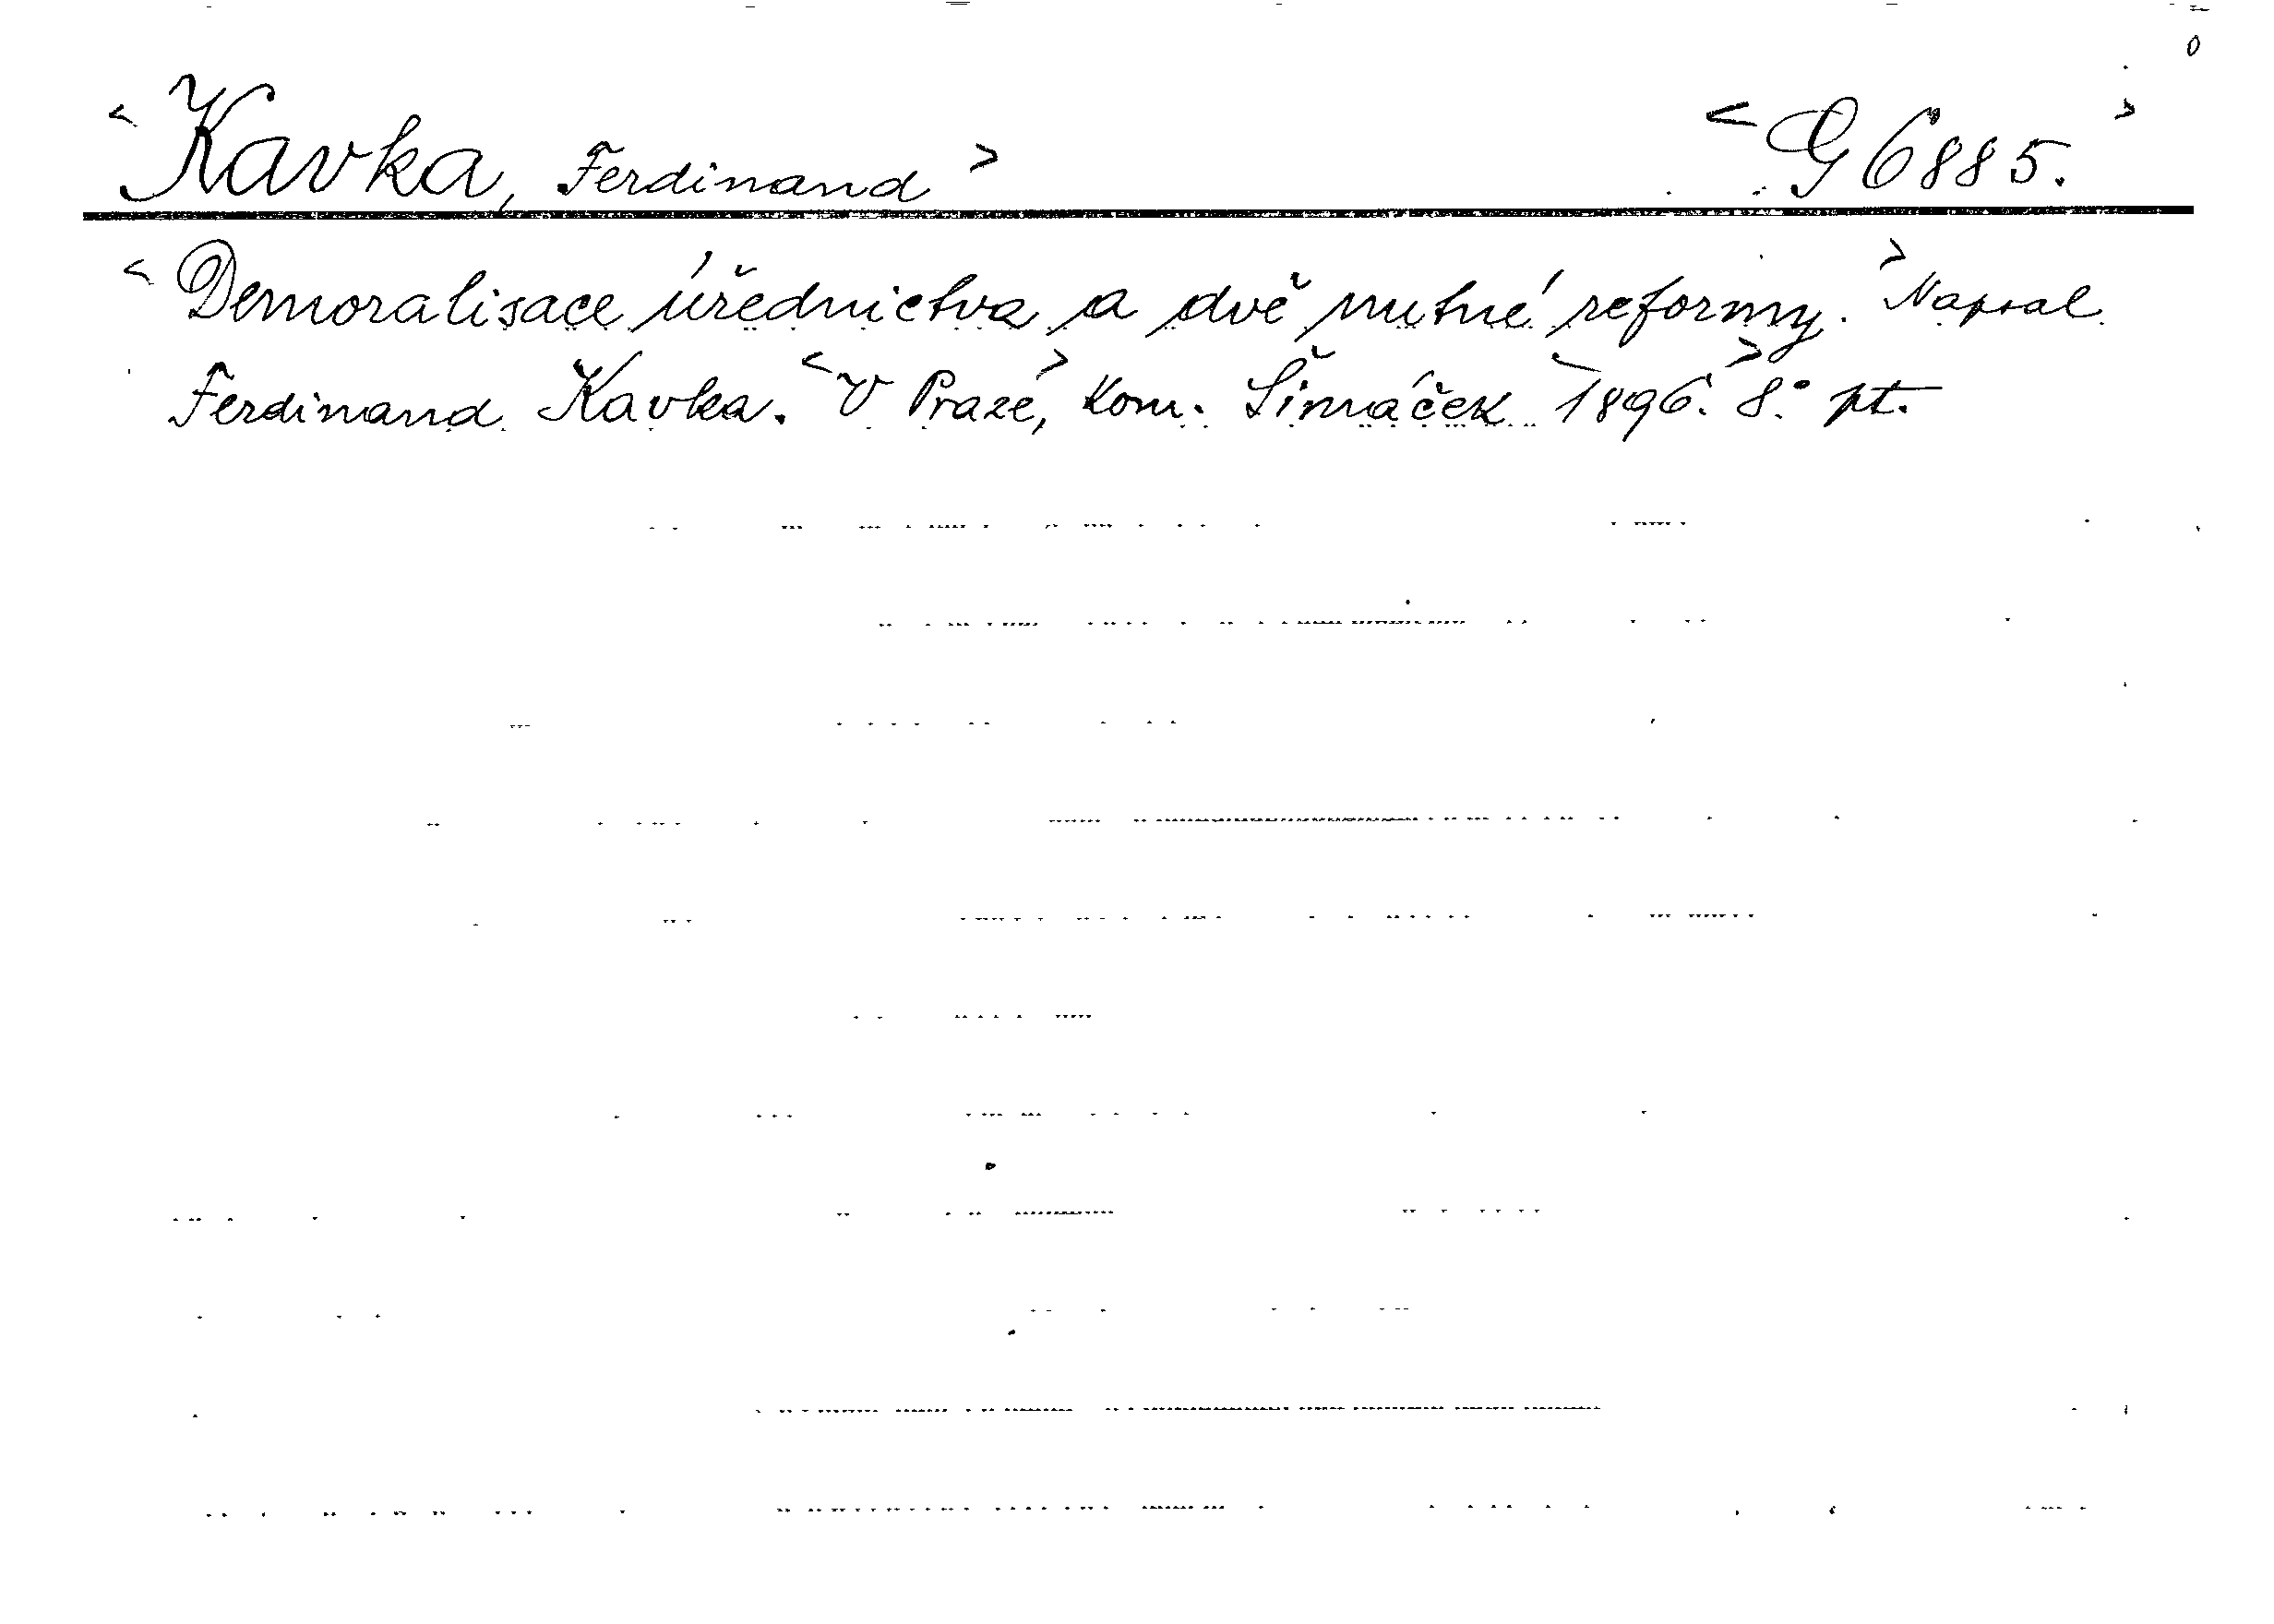 <Kavka, Ferdinand> <G 6885.>
<Demoralisace úřednictva a dvě nutné reformy.> Napsal
Ferdinand Kavka. <V Praze,> Kom. Šimáček <1896.> 8.° pt.